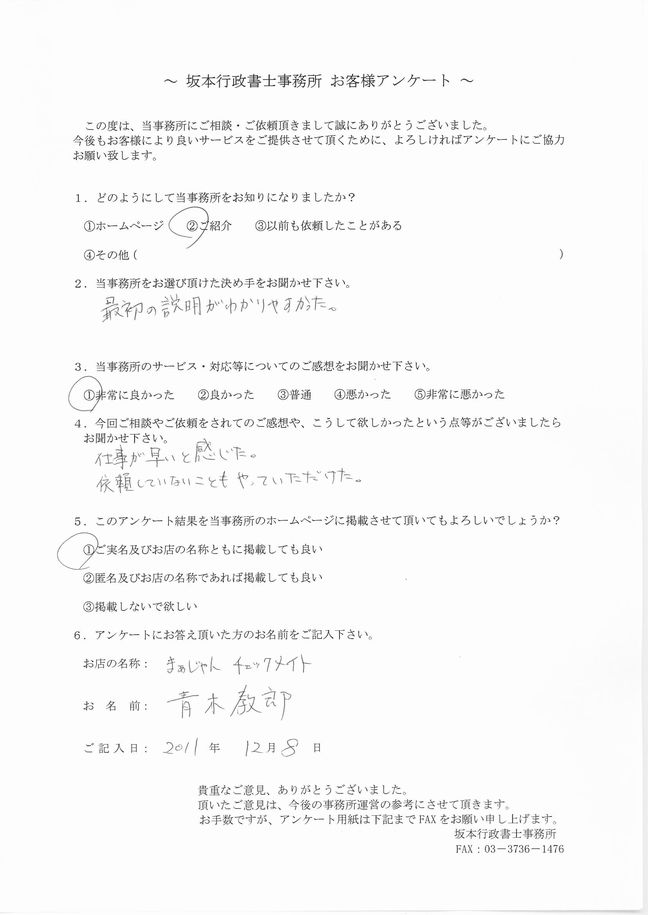 ～ 坂本行政書士事務所 お客様アンケート ～
この度は、当事務所にご相談・ご依頼頂きまして誠にありがとうございました。
今後もお客様により良いサービスをご提供させて頂くために、よろしければアンケートにご協力
お願い致します。
１．どのようにして当事務所をお知りになりましたか？
①ホームページ ②ご紹介 ③以前も依頼したことがある
④その他（ ）
２．当事務所をお選び頂けた決め手をお聞かせ下さい。
最初の説明がわかりやすかった。
３．当事務所のサービス・対応等についてのご感想をお聞かせ下さい。
①非常に良かった ②良かった ③普通 ④悪かった ⑤非常に悪かった
４．今回ご相談やご依頼をされてのご感想や、こうして欲しかったという点等がございましたら
お聞かせ下さい。
仕事が早いと感じた。
依頼していないこともやっていただけた。
５．このアンケート結果を当事務所のホームページに掲載させて頂いてもよろしいでしょうか？
①ご実名及びお店の名称ともに掲載しても良い
②匿名及びお店の名称であれば掲載しても良い
③掲載しないで欲しい
６．アンケートにお答え頂いた方のお名前をご記入下さい。
お店の名称： まぁじゃん チェックメイト
お 名 前： 青木教郎
ご記入日： 2011 年 12月 8 日
貴重なご意見、ありがとうございました。
頂いたご意見は、今後の事務所運営の参考にさせて頂きます。
お手数ですが、アンケート用紙は下記まで FAX をお願い申し上げます。
坂本行政書士事務所
FAX：03－3736－1476